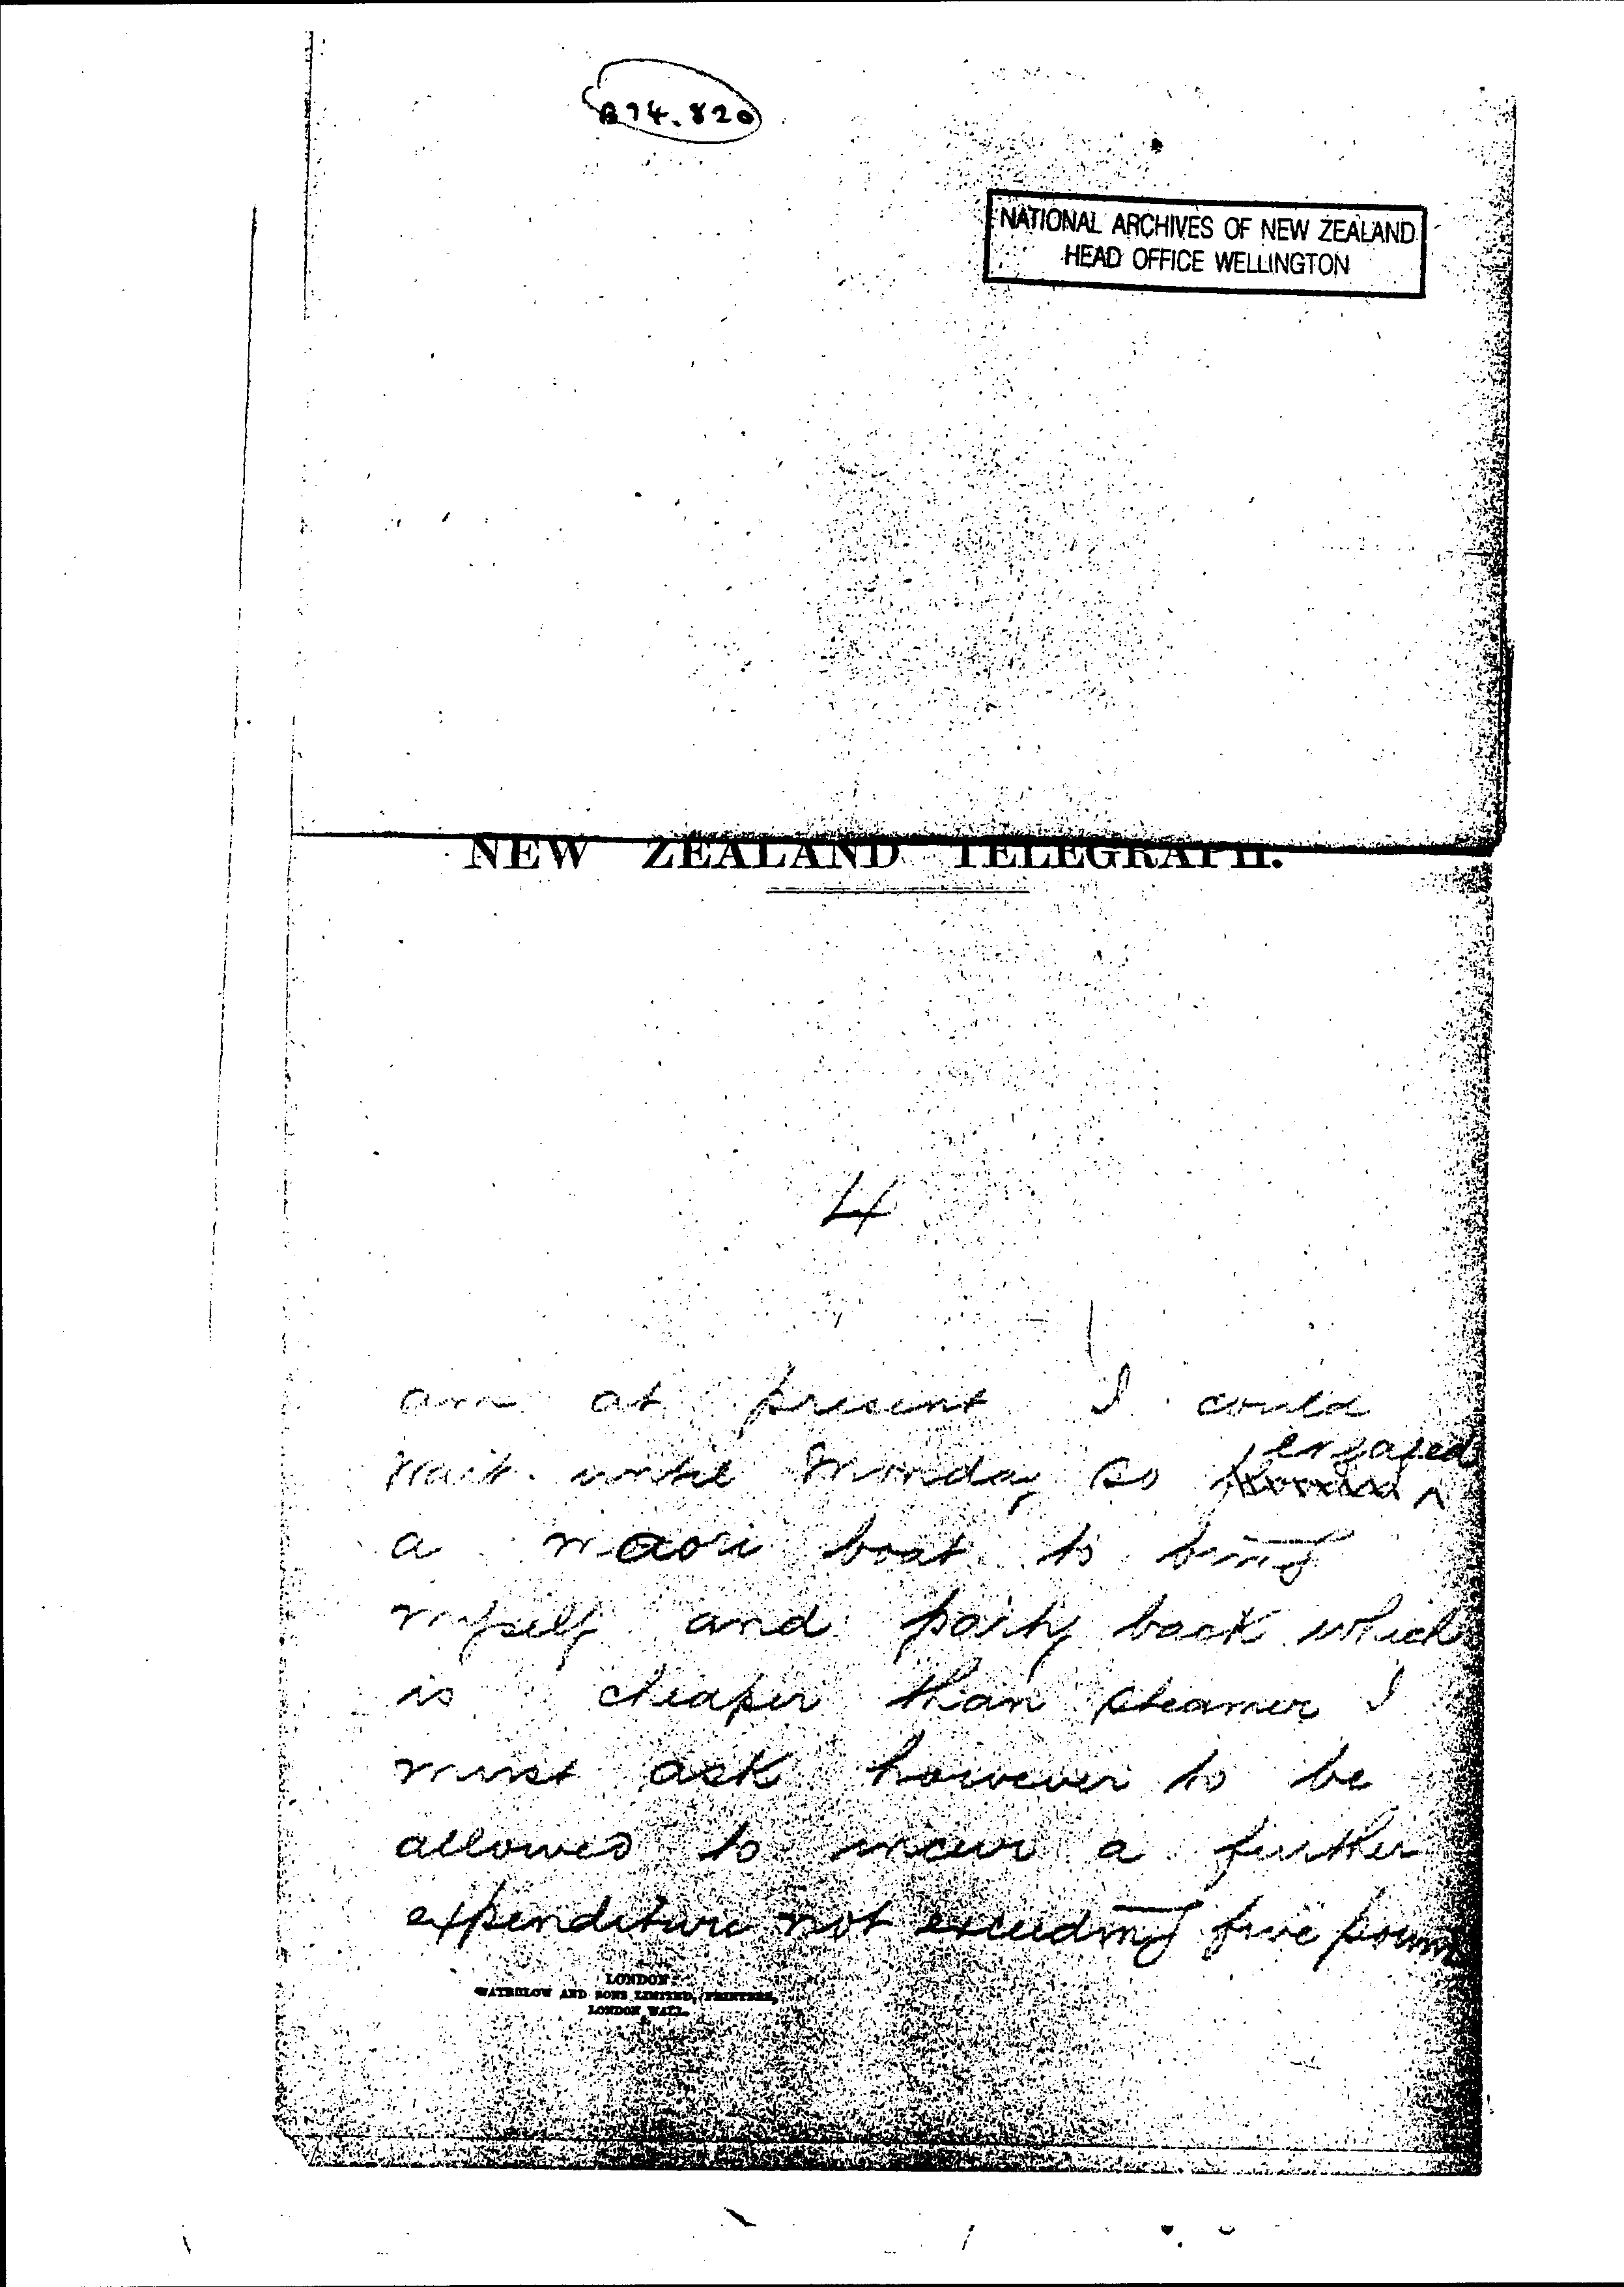 B94.820
NATIONAL ARCHIVES OF NEW ZEALAND
HEAD OFFICE WELLINGTON
NEW ZEALAND TELEGRAPH.
4
am at present I could
wait until Monday so engaged
a maori boat to bring
myself and party back which
is cheaper than steamer I
must ask however to be
allowed to incur a further
expenditure not exceeding five pounds
LONDON:
WATERLOW AND SONS LIMITED, PRINTERS,
LONDON WALL.